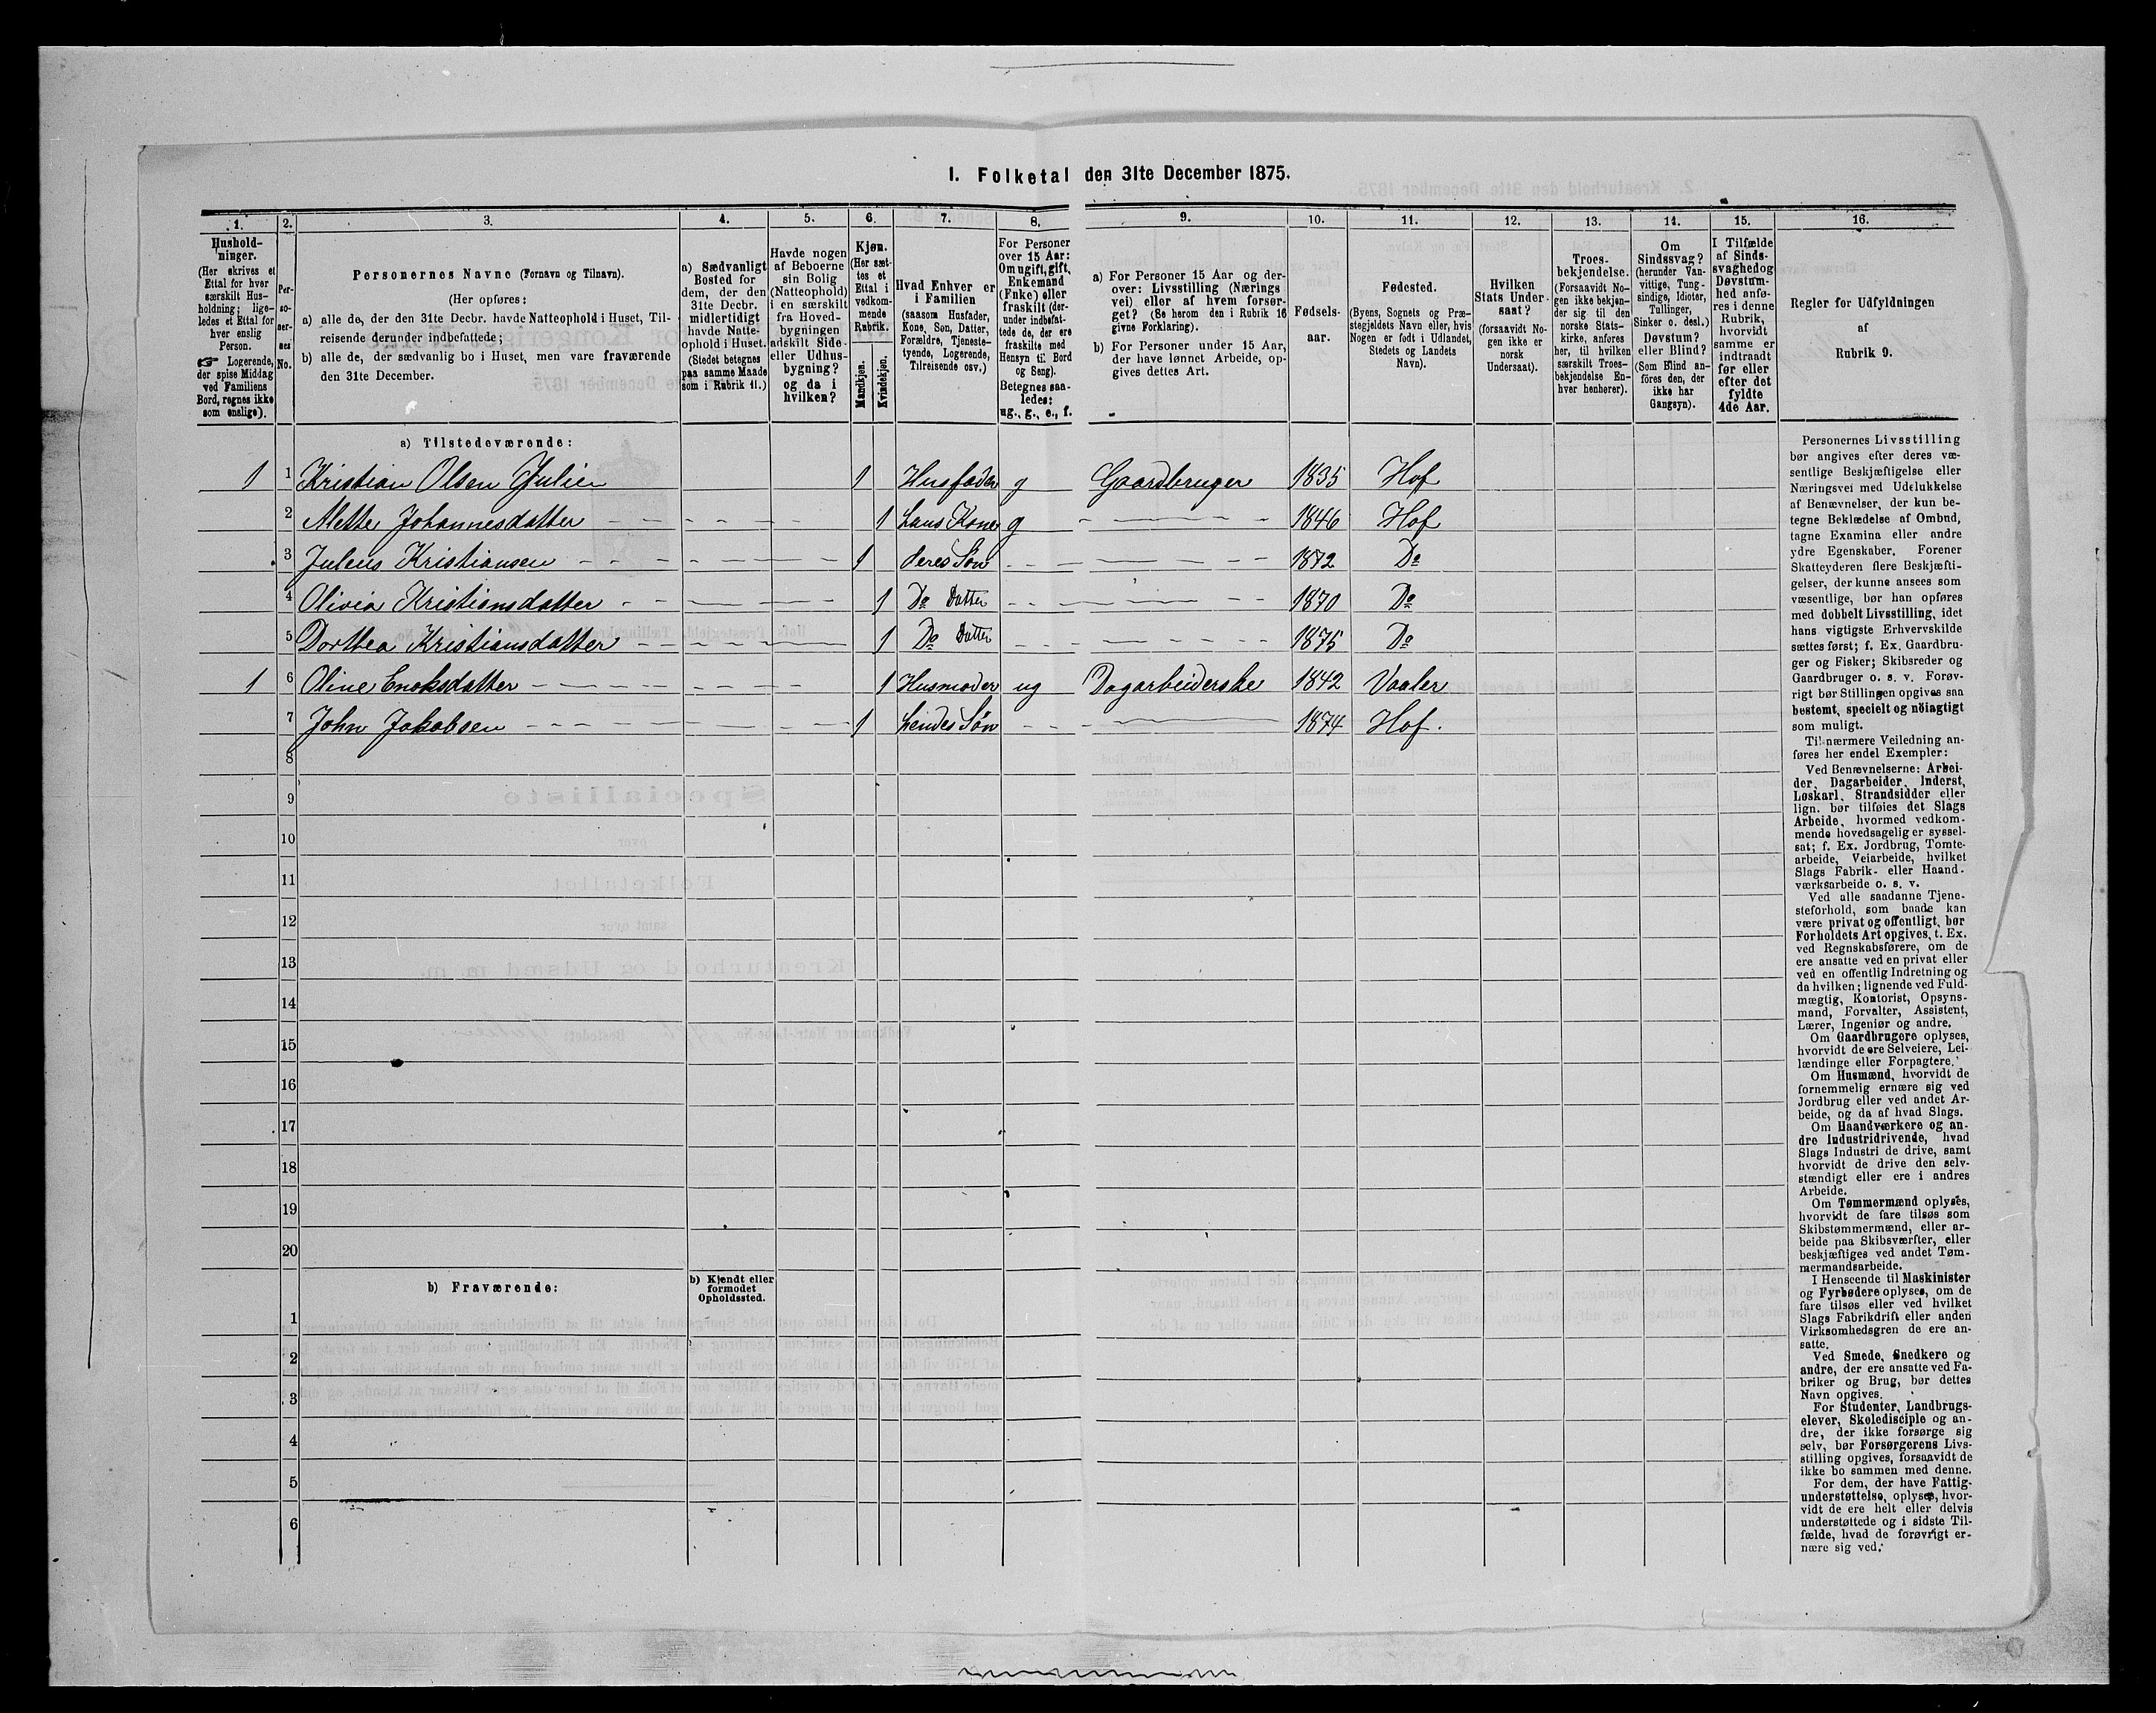 I. Folketal den 31te December 1875.
1. 2. 3. 4. 5. 6. 7. 8. 9. 10. 11. 12. 13. 14. 15. 16.
Hushold-
ninger.
(Her skrives et
Ettal for hver
særskilt Hus-
holdning; lige-
ledes et Ettal for
hver enslig
Person.
Logerende,
der spise Middag
ved Familiens
Bord, regnes ikke
som enslige).
Per-
so-
ner-
nes
No.
Personernes Navne (Fornavn og Tilnavn).
(Her opføres:
a) alle de, der den 31te Decbr. havde Natteophold i Huset, Til-
reisende derunder indbefattede;
b) alle de, der sædvanlig bo i Huset, men vare fraværende
den 31te December.
a) Sædvanligt
Bosted for
dem, der den
31te Decbr.
midlertidigt
havde Natte-
ophold i Huset.
(Stedet betegnes
paa samme Maade
som i Rubrik 11.)
Havde nogen
af Beboerne
sin Bolig
(Natteophold)
i en særskilt
fra Hoved-
bygningen
adskilt Side-
eller Udhus-
bygning?
og da i
hvilken?
Kjøn.
(Her sæt-
tes et
Ettal i
vedkom-
mende
Rubrik.
Mandkjøn.
Kvindekjøn.
Hvad Enhver er
i Familien
(saasom Husfader,
Kone, Søn, Datter,
Forældre, Tjeneste-
tyende, Logerende,
Tilreisende osv.)
For Personer
over 15 Aar:
Om ugift, gift,
Enkemand
(Enke) eller
fraskilt (der-
under indbefat-
tede de, der ere
fraskilte med
Hensyn til Bord
og Seng).
Betegnes saa-
ledes:
ug., g., e., f.
a) For Personer 15 Aar og der-
over: Livsstilling (Nærings
vei) eller af hvem forsør-
get? (Se herom den i Rubrik 16
givne Forklaring).
b) For Personer under 15 Aar,
der have lønnet Arbeide, op-
gives dettes Art.
Fødsels-
aar.
Fødested.
(Byens, Sognets og Præ-
stegjeldets Navn eller, hvis
Nogen er født i Udlandet,
Stedets og Landets
Navn).
Hvilken
Stats Under-
saat?
(forsaavidt No-
gen ikke er
norsk
Undersaat).
Troes-
bekjendelse.
(Forsaavidt No-
gen ikke bekjen-
der sig til den
norske Stats-
kirke, anføres
her, til hvilken
særskilt Troes-
bekjendelse En-
hver henhører).
Om
Sindssvag?
(herunder Van-
vittige, Tung-
sindige, Idioter,
Tullinger,
Sinker o. desl.)
Døvstum?
eller Blind?
(Som Blind an-
føres den, der
ikke har
Gangsyn).
I Tilfælde
af Sinds-
svaghed og
Døvstum-
hed anfø-
res i denne
Rubrik,
hvorvidt
samme er
indtraadt
før eller
efter det
fyldte
4de Aar.
Regler for Udfyldningen
af
Rubrik 9.
a) Tilstedeværende:
1 1 Kristian Olsen Julien 1 Husfader g Gaardbruger 1835 Hof
2 Mette Johannesdatter 1 hans Kone g 1846 Hof
3 Julius Kristiansen 1 deres Søn 1872 Do
4 Olivia Kristiansdatter 1 Do Datter 1870 Do
5 Dorthea Kristiansdatter 1 Do Datter 1875 Do
1 6 Oline Enoksdatter 1 Husmoder ug Dagarbeiderske 1842 Vaaler
7 John Jakobsen 1 hendes Søn 1874 Hof.
8
9
10
11
12
13
14
15
16
17
18
19
20
b) Fraværende:
b) Kjendt eller
formodet
Opholdssted.
1
2
3
4
5
6
Personernes Livsstilling
bør angives efter deres væ-
sentlige Beskjæftigelse eller
Næringsvei med Udelukkelse
af Benævnelser, der kun be-
tegne Beklædelse af Ombud,
tagne Examina eller andre
ydre Egenskaber. Forener
Skatteyderen flere Beskjæfti-
gelser, der kunne ansees som
væsentlige, bør han opføres
med dobbelt Livsstilling, idet
hans vigtigste Erhvervskilde
sættes først; f. Ex. Gaardbru-
ger og Fisker; Skibsreder og
Gaardbruger o. s. v. Forøv-
rigt bør Stillingen opgives saa
bestemt, specielt og nöiagtigt
som muligt.
Til nærmere Veiledning an-
føres her endel Exempler:
Ved Benævnelserne: Arbei-
der, Dagarbeider, Inderst,
Løskarl, Strandsidder eller
lign. bør tilføies det Slags
Arbeide, hvormed vedkom-
mende hovedsagelig er syssel-
sat; f. Ex. Jordbrug, Tomte-
arbeide, Veiarbeide, hvilket
Slags Fabrik- eller Haand-
værksarbeide o. s. v.
Ved alle saadanne Tjene-
steforhold, som baade kan
være privat og offentligt, bør
Forholdets Art opgives, t. Ex.
ved Regnskabsførere, om de
ere ansatte ved en privat eller
ved en offentlig Indretning og
da hvilken; lignende ved Fuld-
mægtig, Kontorist, Opsyns-
mand, Forvalter, Assistent,
Lærer, Ingeniør og andre.
Om Gaardbrugere oplyses,
hvorvidt de ere Selveiere, Lei-
lændinge eller Forpagtere.
Om Husmænd, hvorvidt de
fornemmelig ernære sig ved
Jordbrug eller ved andet Ar-
beide, og da af hvad Slags.
Om Haandværkere og an-
dre Industridrivende, hvad
Slags Industri de drive, samt
hvorvidt de drive den selv-
stændigt eller ere i andres
Arbeide.
Om Tømmermænd oplyses,
hvorvidt de fare tilsøs som
Skibstømmermænd, eller ar-
beide paa Skibsværfter, eller
beskjæftiges ved andet Tøm-
mermandsarbeide.
I Henseende til Maskinister
og Fyrbødere oplyses, om de
fare tilsøs eller ved hvilket
Slags Fabrikdrift eller anden
Virksomhedsgren de ere an-
satte.
Ved Smede, Snedkere og
andre, der ere ansatte ved Fa-
briker og Brug, bør dettes
Navn opgives.
For Studenter, Landbrugs-
elever, Skoledisciple og an-
dre, der ikke forsørge sig
selv, bør Forsørgerens Livs-
stilling opgives, forsaavidt de
ikke bo sammen med denne.
For dem, der have Fattig-
understøttelse, oplyses, hvor-
vidt de ere helt eller delvis
understøttede og i sidste Til-
fælde, hvad de forøvrigt er-
nære sig ved.